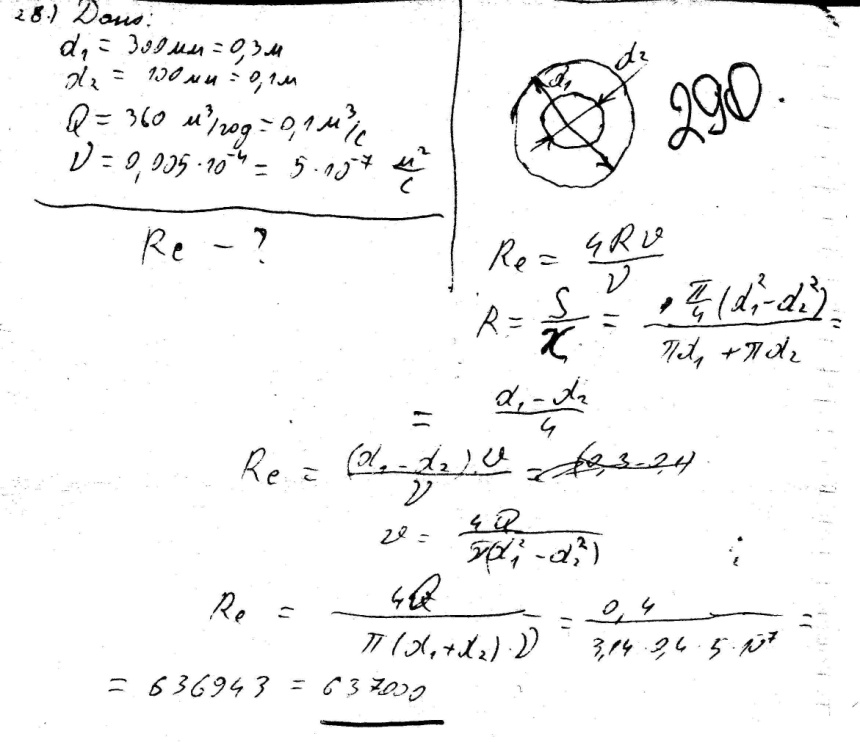 28.) Дано:
d₁ = 300мм = 0,3м
d₂ = 100мм = 0,1м
Q = 360 м³/год = 0,1 м³/с
ν = 0,005·10⁻⁴ = 5·10⁻⁷ м²/с
Re - ?
d₁ d₂
290.
Re = 4Rυ/ν
R = S/χ = π/4(d₁²-d₂²)/(πd₁+πd₂) =
= (d₁-d₂)/4
Re = (d₁-d₂)·υ/ν = (0,3-0,1)
υ = 4Q/π(d₁²-d₂²)
Re = 4Q/(π(d₁+d₂)·ν) = 0,4/(3,14·0,4·5·10⁷) =
= 636943 = 637000